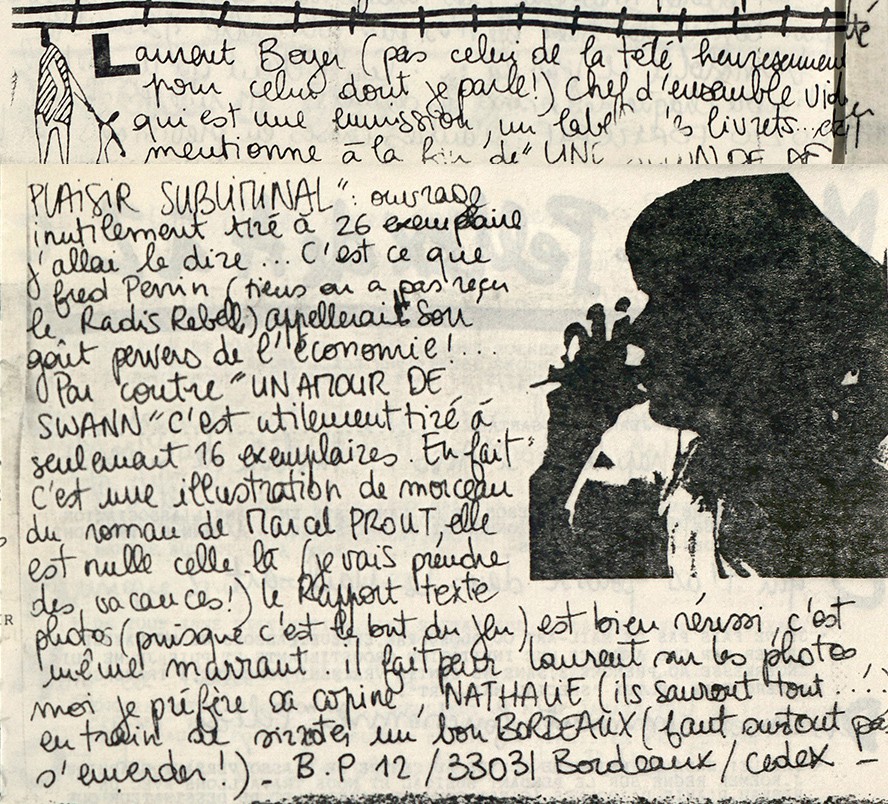 Laurent Boyer (pas celui de la télé heureusement
pour celui dont je parle!) Chef d'ensemble
qui est une émission, un label 3 livrets...
mentionne à la fin de "UN
PLAISIR SUBLIMINAL": ouvrage
inutilement tiré à 26 exemplaire
j'allai le dire... C'est ce que
fred Perrin (tiens on a pas reçu
le Radis Rebell) appellerait son
goût pervers de l'économie!...
Par contre "UN AMOUR DE
SWANN" c'est utilement tiré à
seulement 16 exemplaires. En fait
c'est une illustration de morceau
du roman de Marcel PROUT, elle
est nulle celle là (je vais prendre
des vacances!) le Rapport texte
photos (puisque c'est le but du jeu) est bien réussi, c'est
même marrant. il fait peur, laurent sur les photos
moi je préfère sa copine, NATHALIE (ils sauront tout...!)
en train de siroter un bon BORDEAUX (faut surtout pas
s'emerder!)_ B.P 12 / 33031 Bordeaux / cedex -